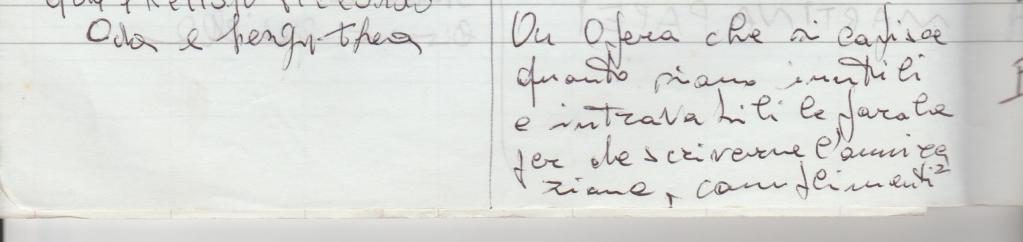 ricordo
Oda e
Un Opera che si capisce
quanto siano inutili
e introvabili le parole
per descriverne l'ammira
zione, complimenti